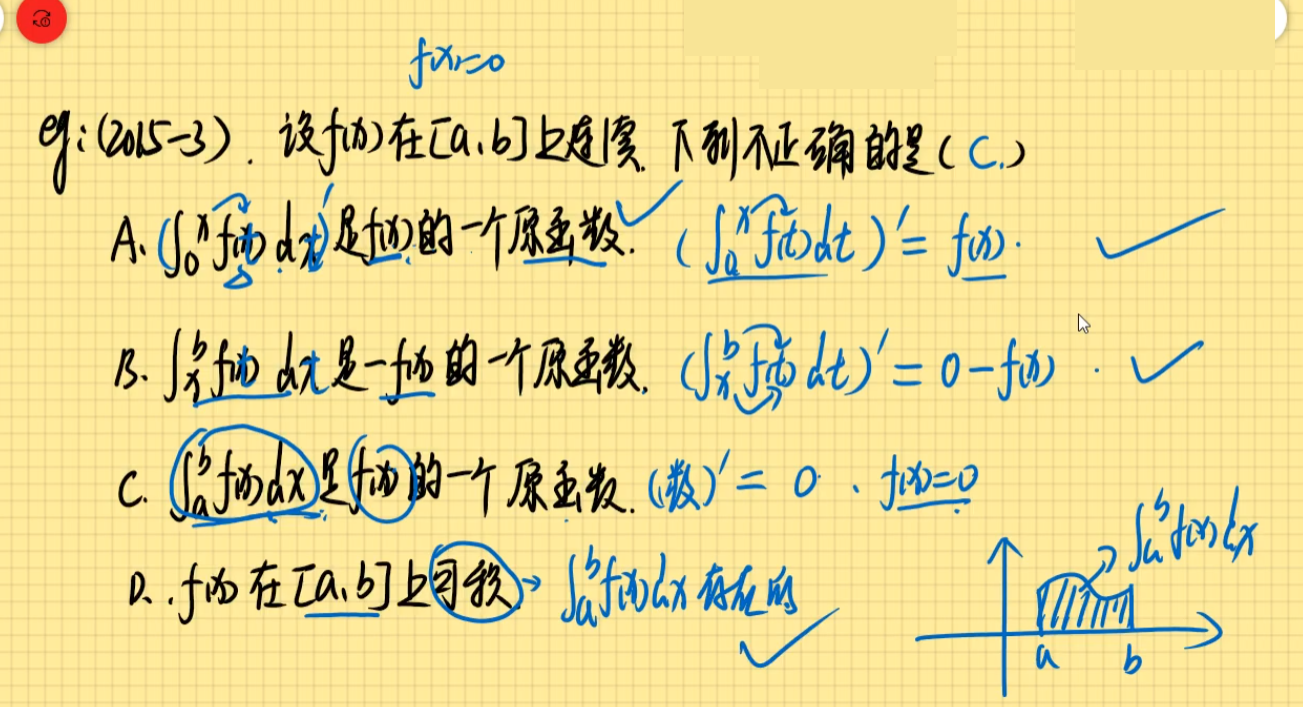 f(x)=0
eg:(2015-3). 设f(x)在[a,b]上连续.下列不正确的是(C.)
A.(∫₀ˣf(t)dt)'是f(x)的一个原函数. (∫ₐˣf(t)dt)'=f(x).
B.∫ₓᵇf(t)dt是-f(x)的一个原函数. (∫ₓᵇf(t)dt)'=0-f(x).
C.∫ₐᵇf(x)dx是f(x)的一个原函数.(数)'=0.f(x)=0
D.f(x)在[a,b]上可积→∫ₐᵇf(x)dx存在的
∫ₐᵇf(x)dx
a b